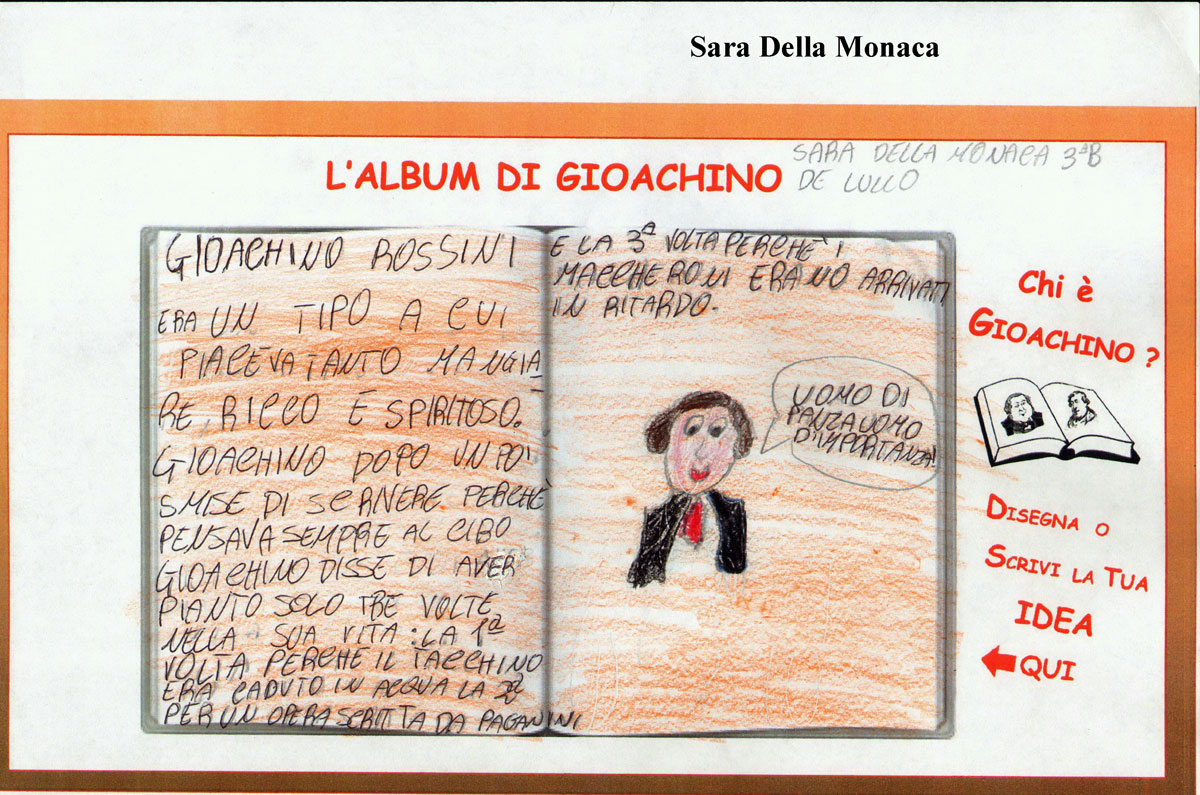 Sara Della Monaca
L'ALBUM DI GIOACHINO
SARA DELLA MONACA 3ªB
DE LULLO
GIOACHINO ROSSINI
ERA UN TIPO A CUI
PIACEVA TANTO MANGIA
RE, RICCO E SPIRITOSO.
GIOACHINO DOPO UN PO'
SMISE DI SCRIVERE PERCHÈ
PENSAVA SEMPRE AL CIBO
GIOACHINO DISSE DI AVER
PIANTO SOLO TRE VOLTE
NELLA SUA VITA: LA 1ª
VOLTA PERCHÈ IL TACCHINO
ERA CADUTO IN ACQUA LA 2ª
PER UN OPERA SCRITTA DA PAGANINI
E LA 3ª VOLTA PERCHÈ I
MACCHERONI ERANO ARRIVATI
IN RITARDO.
UOMO DI
PANZA UOMO
D'IMPORTANZA!
Chi è
GIOACHINO ?
DISEGNA O
SCRIVI LA TUA
IDEA
QUI